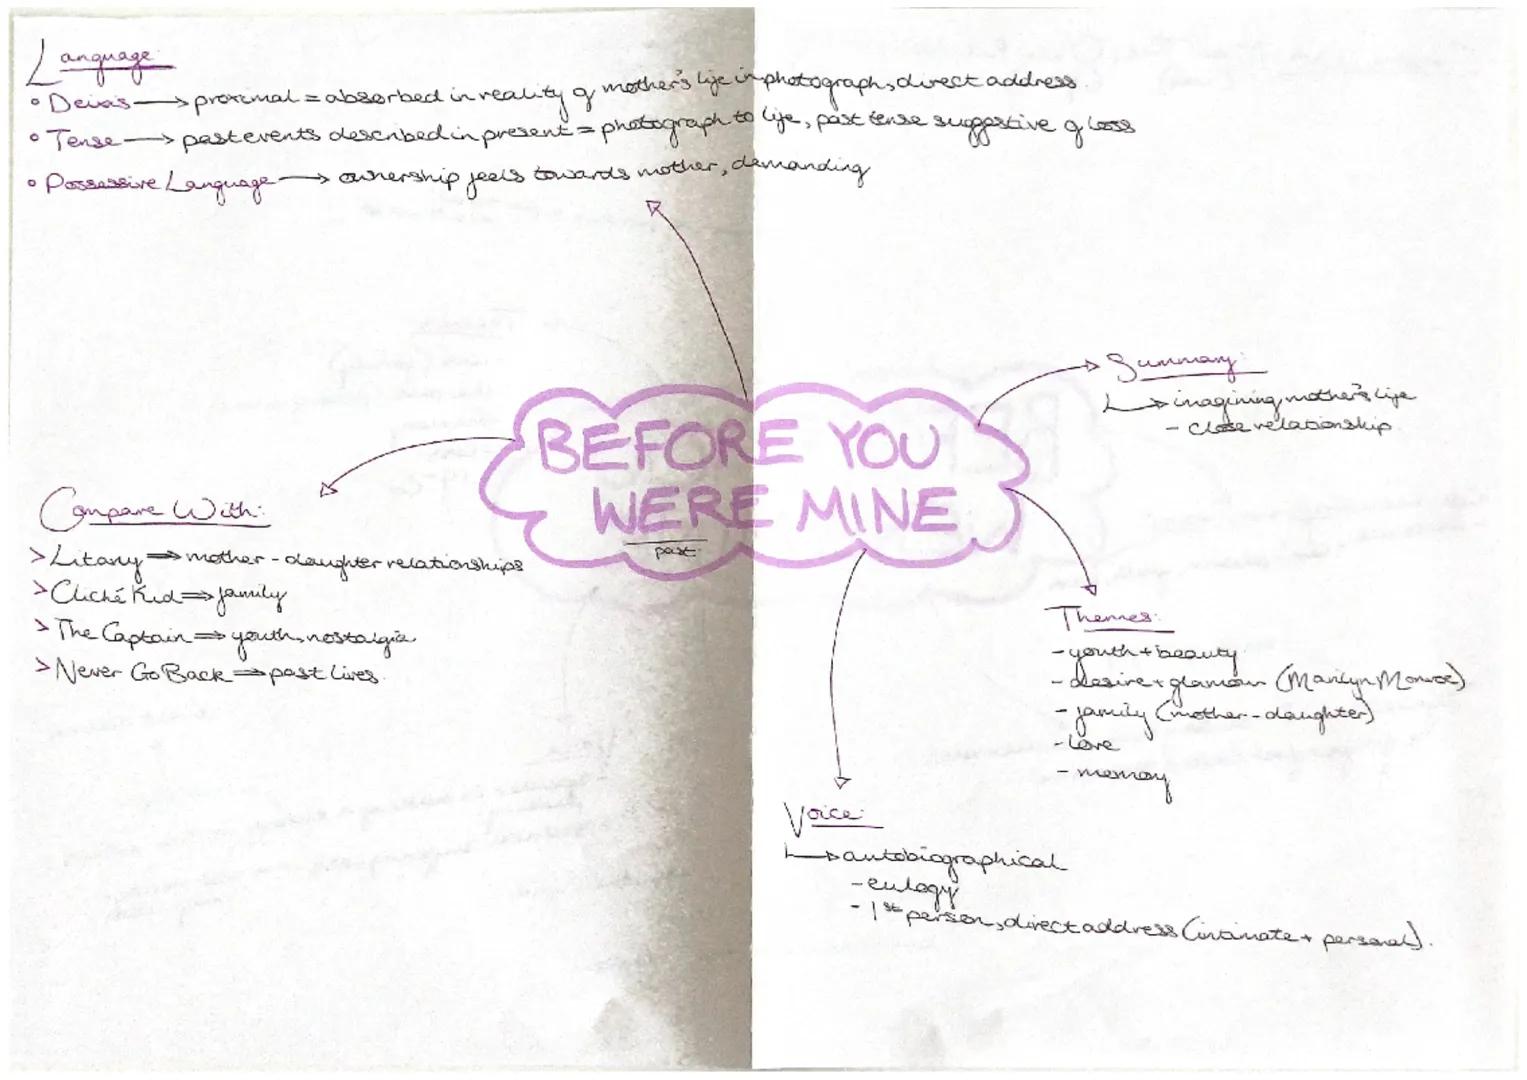 Language:
° Deixis → proximal = absorbed in reality of mother's life in photograph, direct address.
° Tense → past events described in present = photograph to life, past tense suggestive of loss
° Possessive Language → ownership feels towards mother, demanding
Summary:
↳ imagining mother's life
- close relationship.
BEFORE YOU
WERE MINE
past.
Compare With:
> Litany ⇒ mother-daughter relationships
> Cliché Kid ⇒ family
> The Captain ⇒ youth, nostalgia
> Never Go Back ⇒ past lives.
Themes:
- youth + beauty
- desire + glamour (Marilyn Monroe)
- family (mother-daughter)
- love
- memory
Voice:
↳ autobiographical
- eulogy
- 1st person, direct address (intimate + personal).